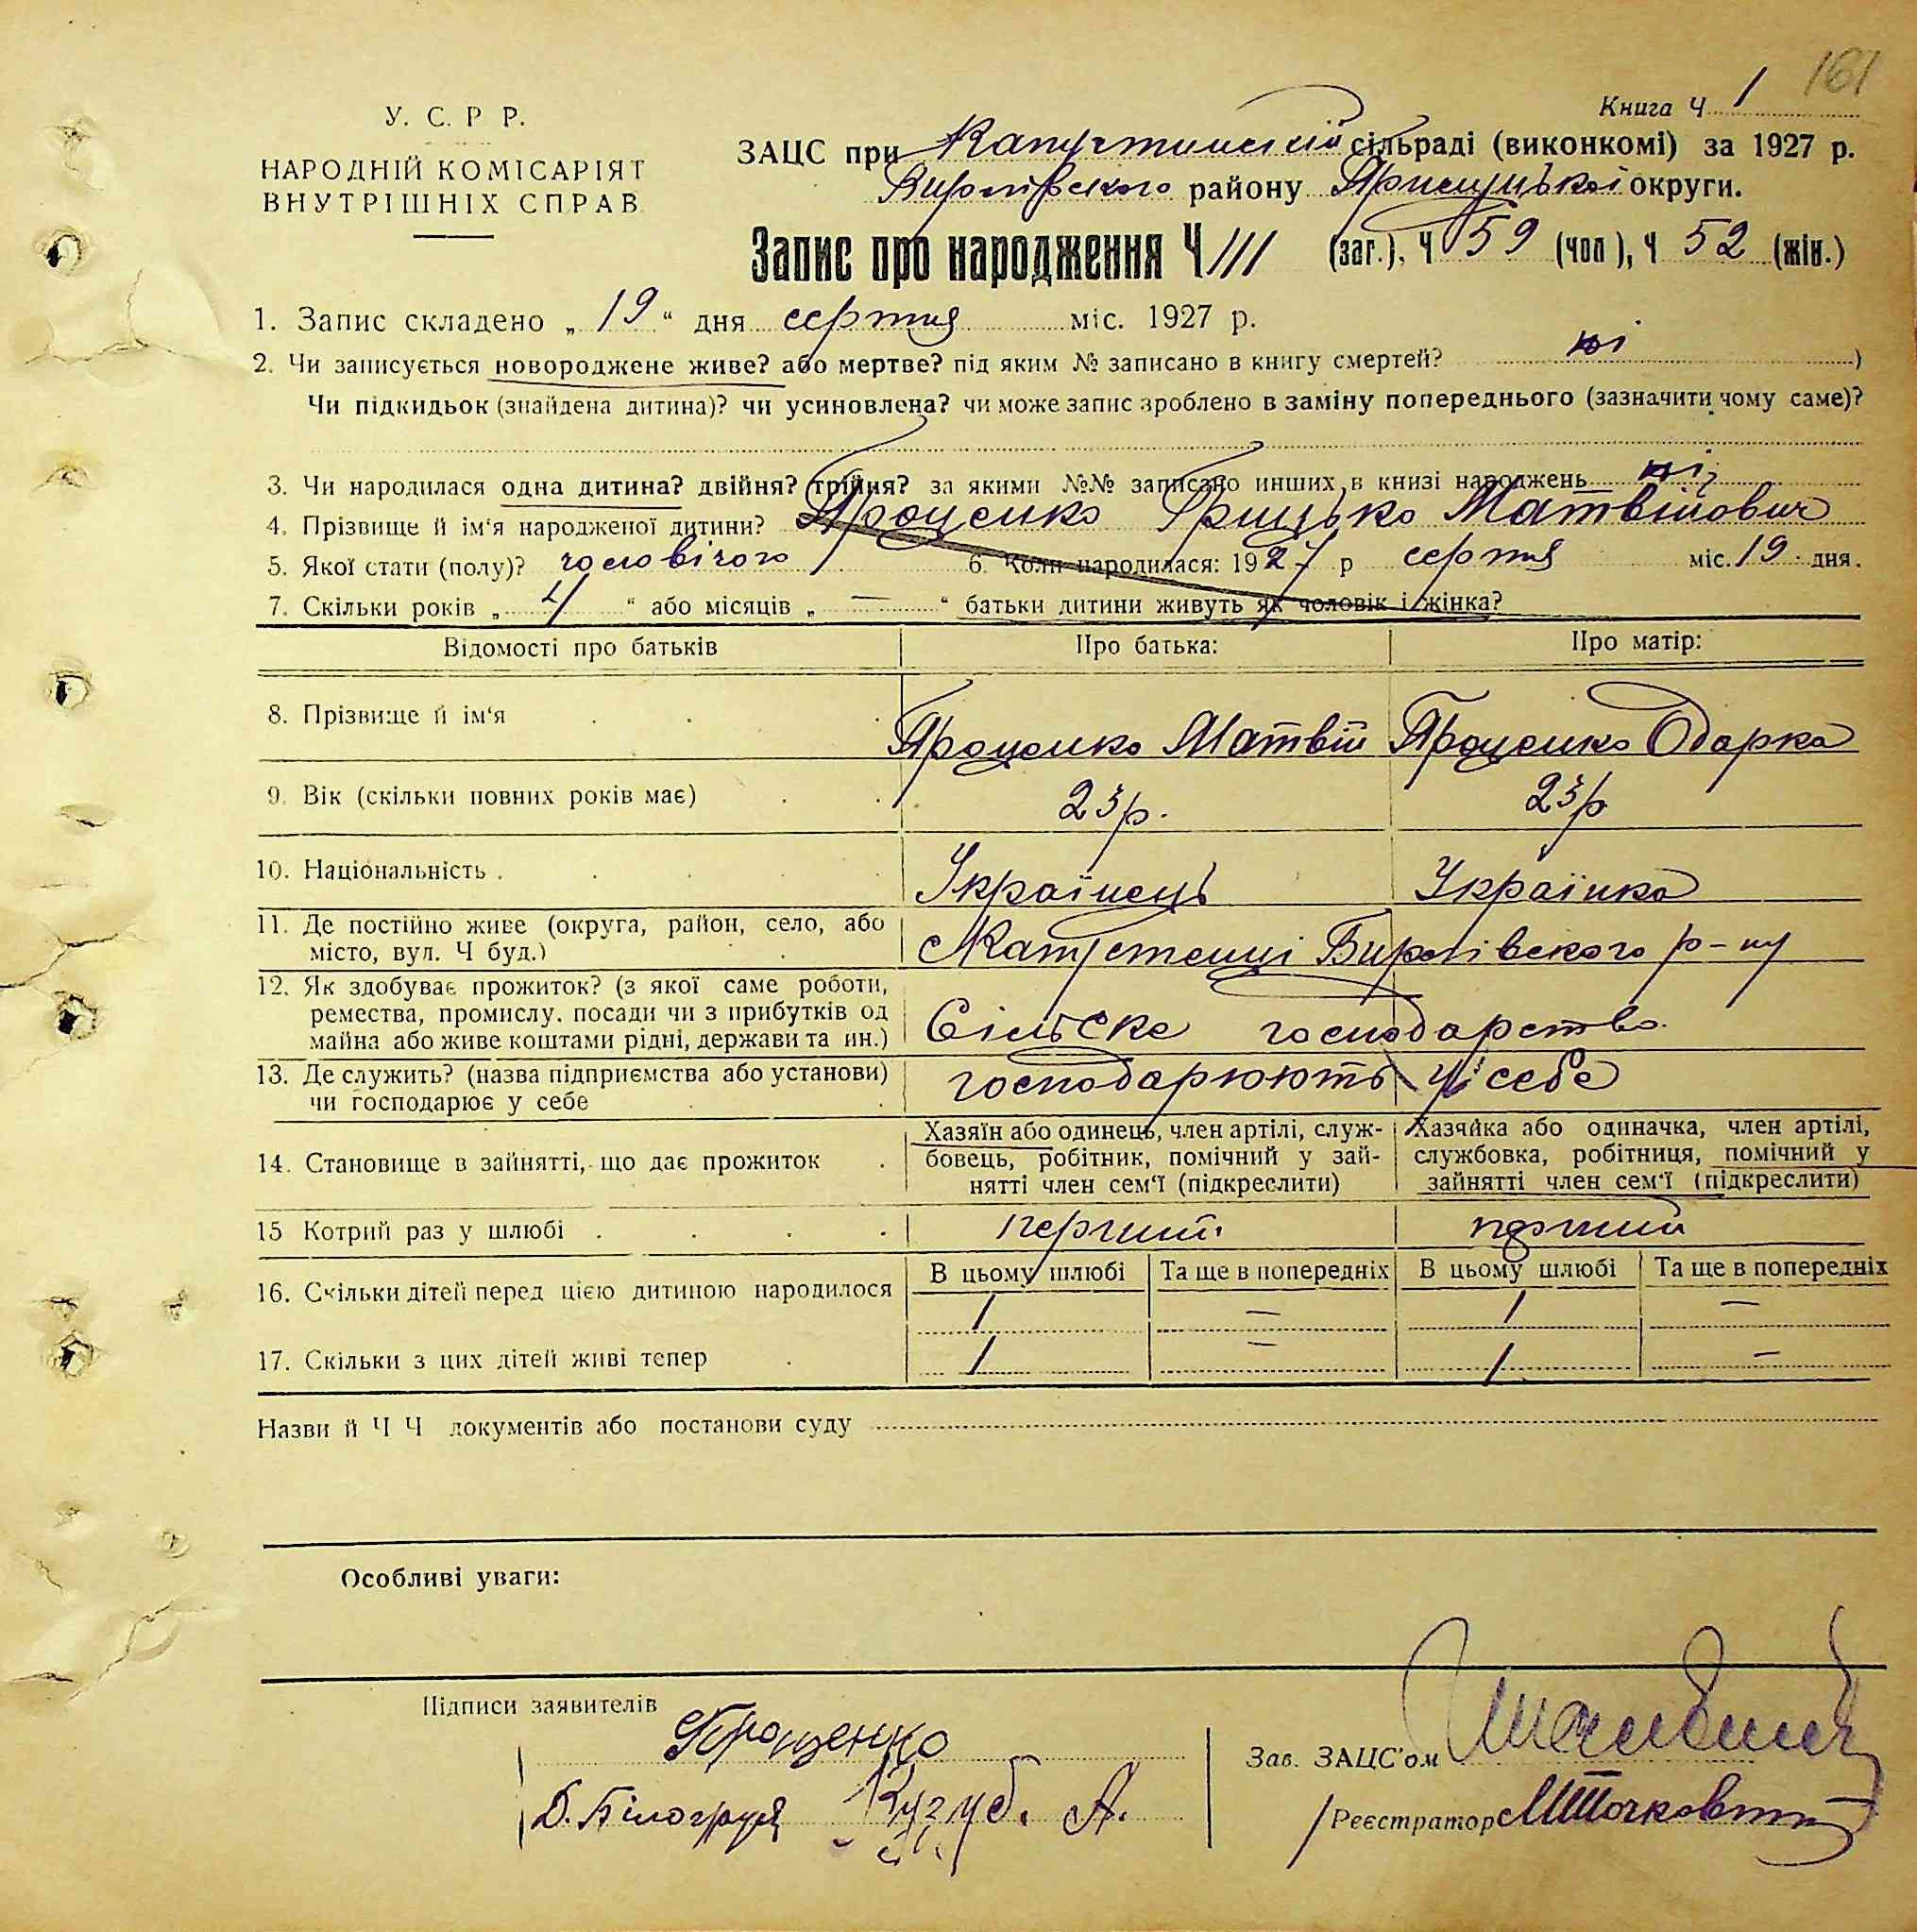 161
Книга Ч 1
У. С. Р Р.
НАРОДНІЙ КОМІСАРІЯТ
ВНУТРІШНІХ СПРАВ
ЗАЦС при Капустинській сільраді (виконкомі) за 1927 р.
району Прилуцької округи.
Запис про народження Ч 111 (заг.), Ч 59 (чол), Ч 52 (жін.)
1. Запис складено „ 19 “ дня серпня міс. 1927 р.
2. Чи записується новороджене живе? або мертве? під яким № записано в книгу смертей? ні )
Чи підкидьок (знайдена дитина)? чи усиновлена? чи може запис зроблено в заміну попереднього (зазначити чому саме)?
3. Чи народилася одна дитина? двійня? трійня? за якими №№ записано инших в книзі народжень ні
4. Прізвище й ім‘я народженої дитини? Проценко Грицько Матвійович
5. Якої стати (полу)? чоловічого 6. Коли народилася: 1927 р серпня міс. 19 дня.
7. Скільки років „ 4 “ або місяців „ — “ батьки дитини живуть як чоловік і жінка?
Відомості про батьків Про батька: Про матір:
8. Прізвище й ім‘я Проценко Матвій Проценко Одарка
9. Вік (скільки повних років має) 23р. 23р
10. Національність Українець Українка
11. Де постійно живе (округа, район, село, або
місто, вул. Ч буд.) р-ну
12. Як здобуває прожиток? (з якої саме роботи,
ремества, промислу, посади чи з прибутків од
майна або живе коштами рідні, держави та ин.) Сільске господарство
13. Де служить? (назва підприємства або установи)
чи господарює у себе господарюють у себе
14. Становище в зайнятті, що дає прожиток
Хазяїн або одинець, член артілі, служ-
бовець, робітник, помічний у зай-
нятті член сем‘ї (підкреслити)
Хазяйка або одиначка, член артілі,
службовка, робітниця, помічний у
зайнятті член сем‘ї (підкреслити)
15 Котрий раз у шлюбі перший перший
В цьому шлюбі Та ще в попередніх В цьому шлюбі Та ще в попередніх
16. Скільки дітей перед цією дитиною народилося 1 — 1 —
17. Скільки з цих дітей живі тепер 1 — 1 —
Назви й Ч Ч документів або постанови суду
Особливі уваги:
Підписи заявителів
Проценко
Д. Білогруд Кугуб. А.
Зав. ЗАЦС'ом
Реєстратор